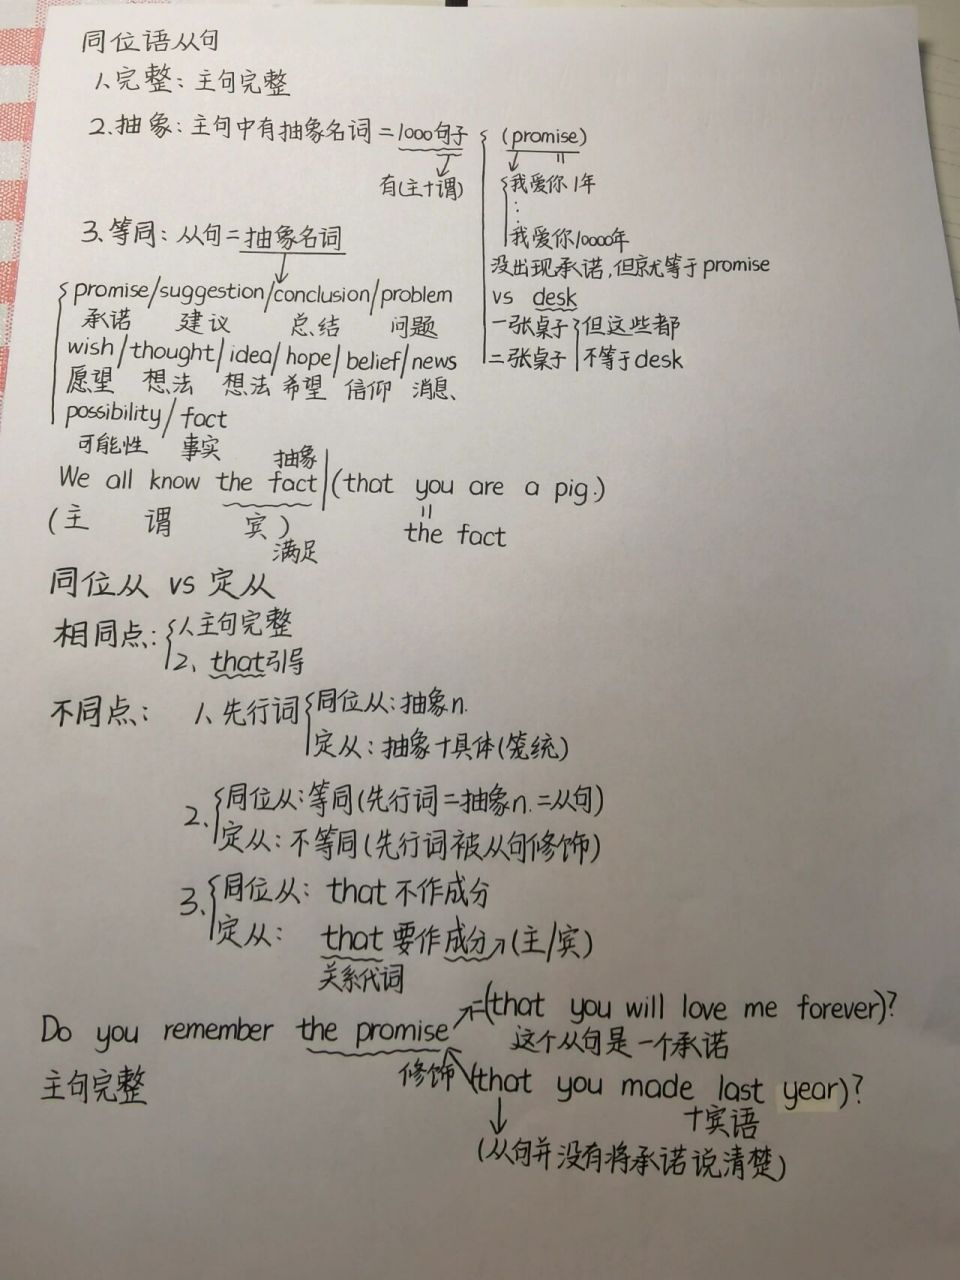 同位语从句
1、完整：主句完整
2、抽象：主句中有抽象名词=1000句子
有(主+谓)
(promise)
=
我爱你1年
⋮
我爱你10000年
没出现承诺,但就等于promise
vs desk
一张桌子 但这些都
二张桌子 不等于desk
3、等同：从句=抽象名词
promise/suggestion/conclusion/problem
承诺 建议 总结 问题
wish/thought/idea/hope/belief/news
愿望 想法 想法 希望 信仰 消息、
possibility/fact
可能性 事实
抽象
We all know the fact (that you are a pig.)
(主 谓 宾) = the fact
满足
同位从 vs 定从
相同点: 1、主句完整
2、that引导
不同点： 1、先行词 同位从：抽象n.
定从：抽象+具体(笼统)
2、同位从：等同(先行词=抽象n.=从句)
定从：不等同(先行词被从句修饰)
3、同位从：that不作成分
定从：that要作成分→(主/宾)
关系代词
Do you remember the promise =(that you will love me forever)?
这个从句是一个承诺
主句完整
修饰 (that you made last year)?
+宾语
(从句并没有将承诺说清楚)